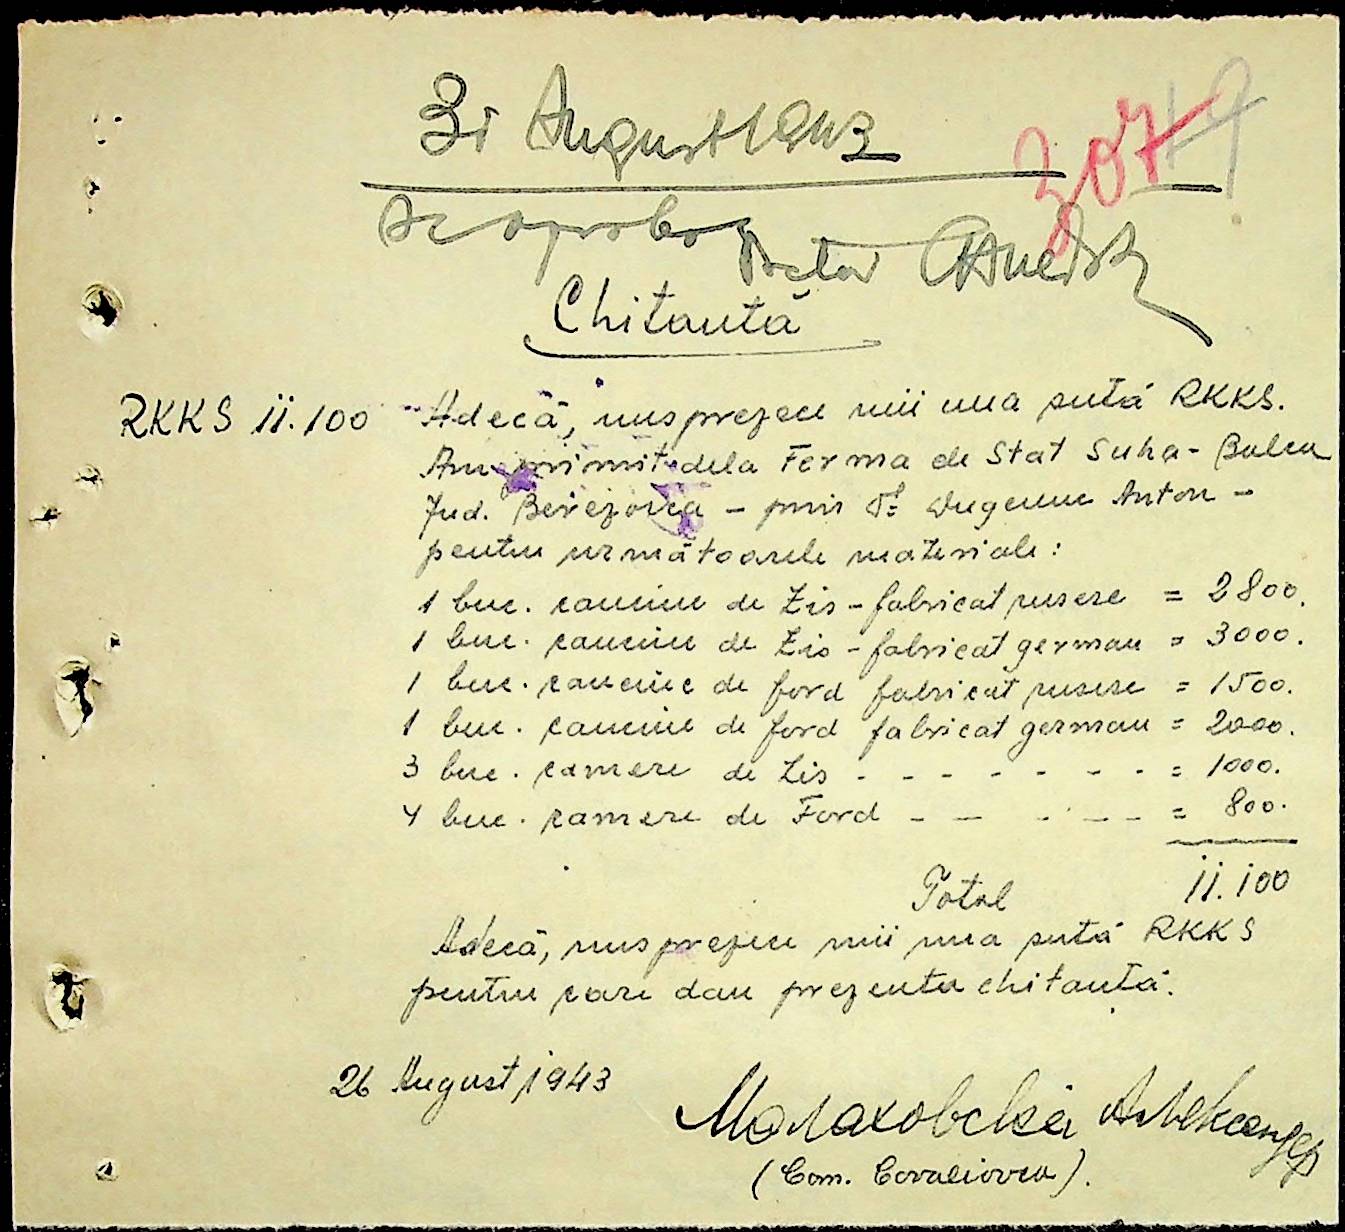 31 August 1943
307 19
se aproba
Chitanță
RKKS 11.100 Adecă, unsprezece mii una sută RKKS.
Am primit dela Ferma de Stat Suha-Balca
Jud. Berezovca - prin Eugeniu Anton -
pentru următoarele materiale:
1 buc. cauciuc de Zis - fabricat rusesc = 2800.
1 buc. cauciuc de Zis - fabricat german = 3000.
1 buc. cauciuc de ford fabricat rusesc = 1500.
1 buc. cauciuc de ford fabricat german = 2000.
3 buc. camere de Zis - - - - - - - = 1000.
4 buc. camere de Ford - - - - - = 800.
Total 11.100
Adecă, unsprezece mii una sută RKKS
pentru care dau prezenta chitanță.
26 August 1943
Малаховскій Александер
(Com. Covaliovca).